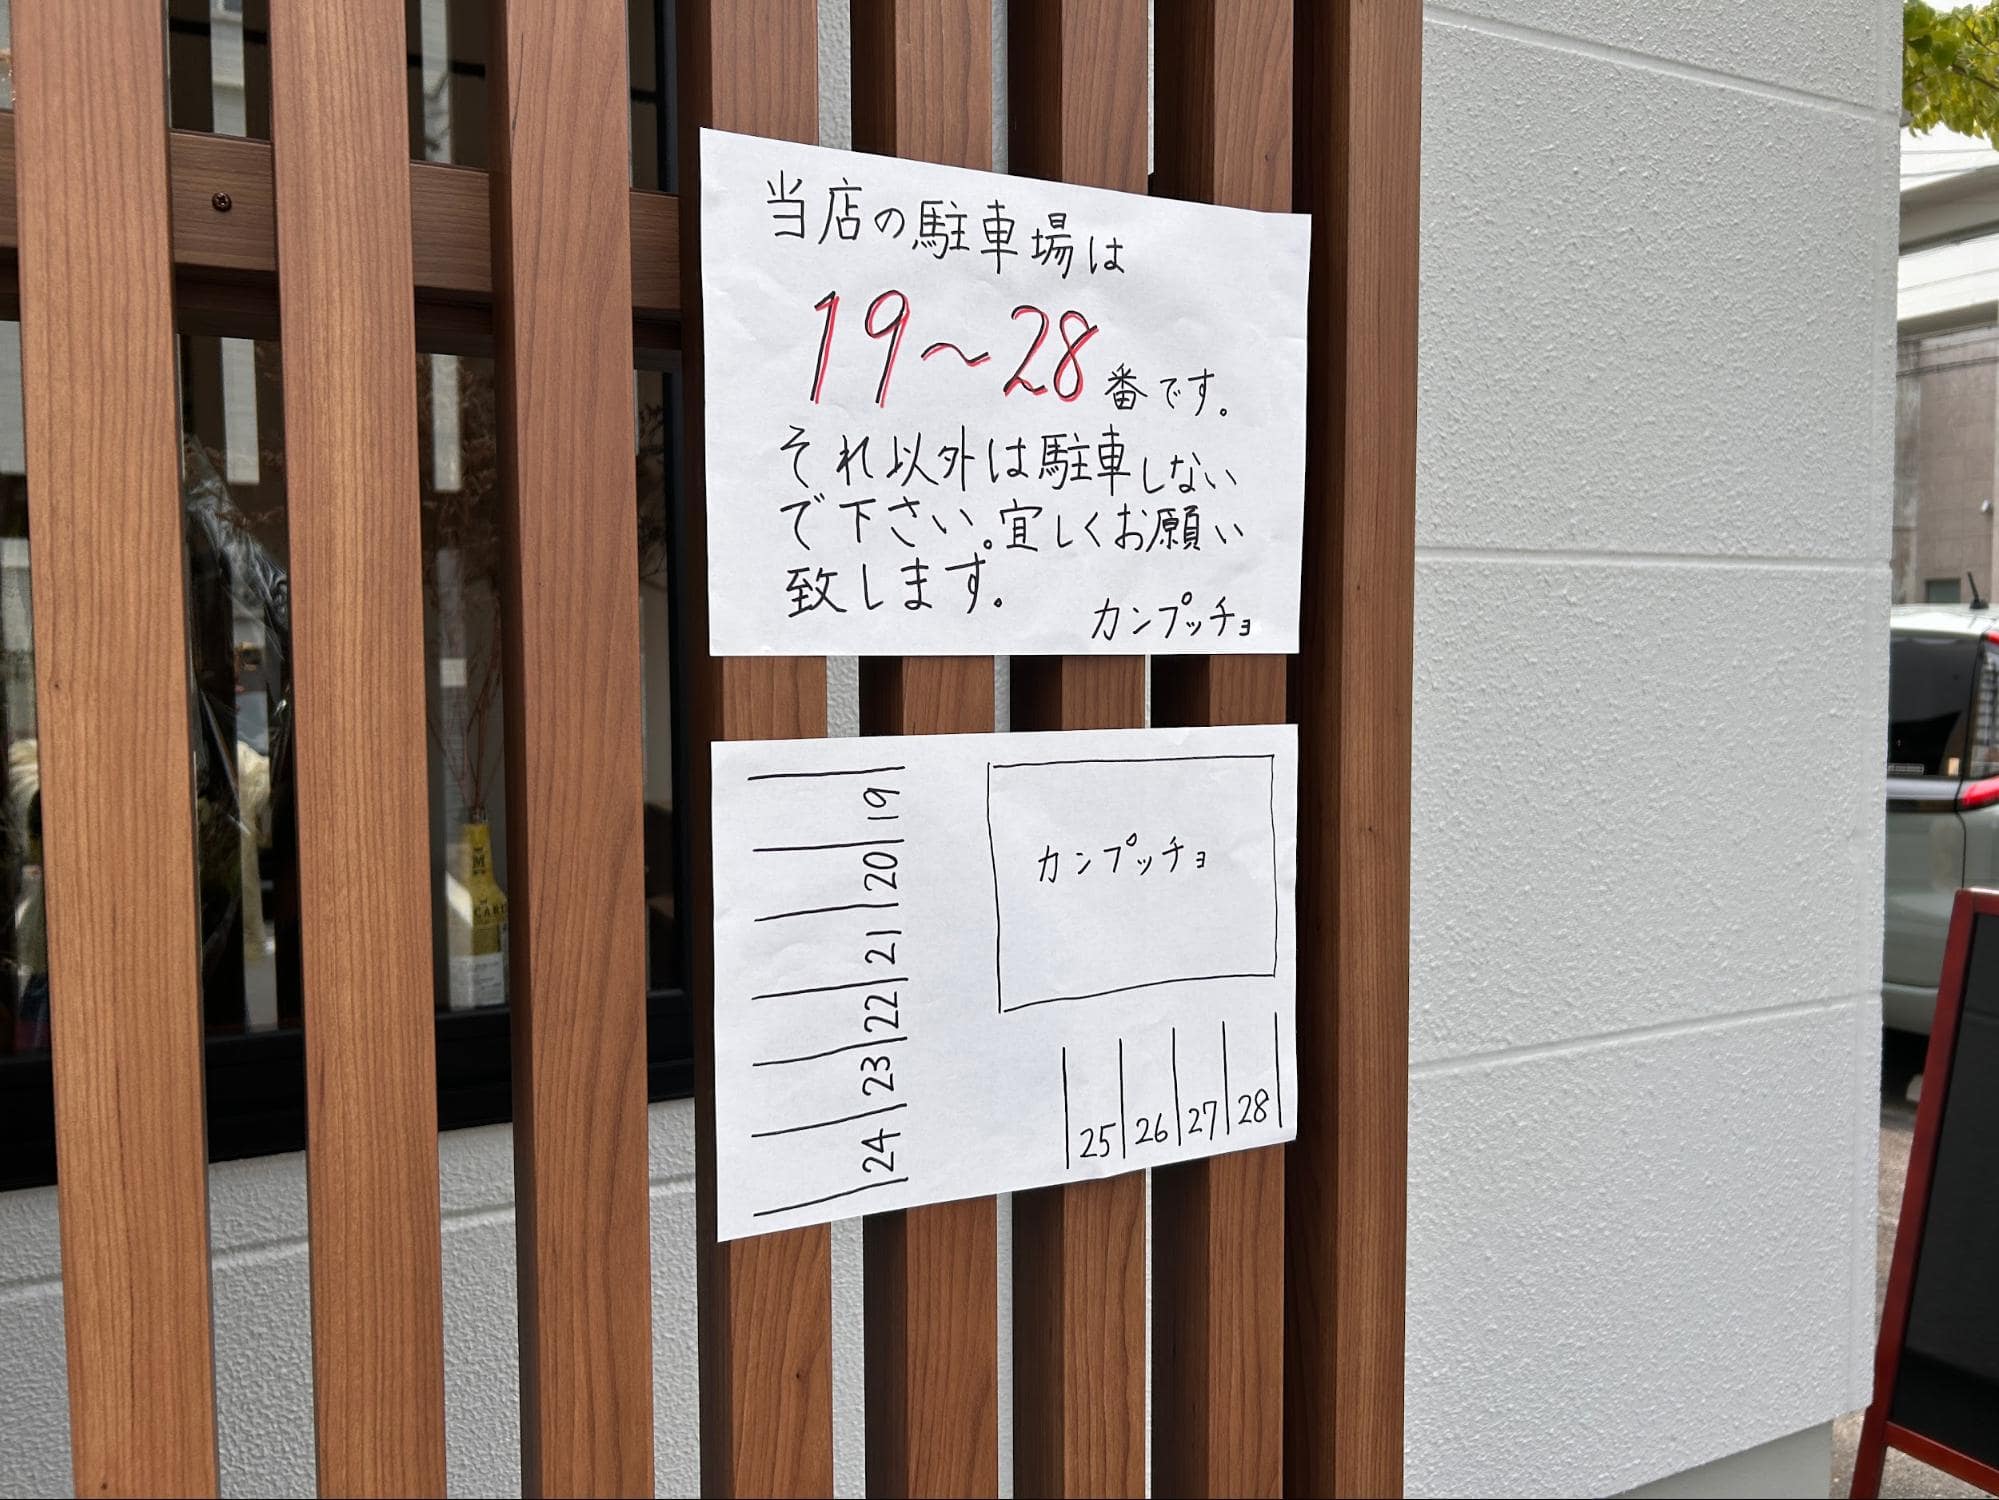 当店の駐車場は
19〜28番です。
それ以外は駐車しない
で下さい。宜しくお願い
致します。
カンプッチョ
19
20
21
22
23
24
カンプッチョ
25 26 27 28
M